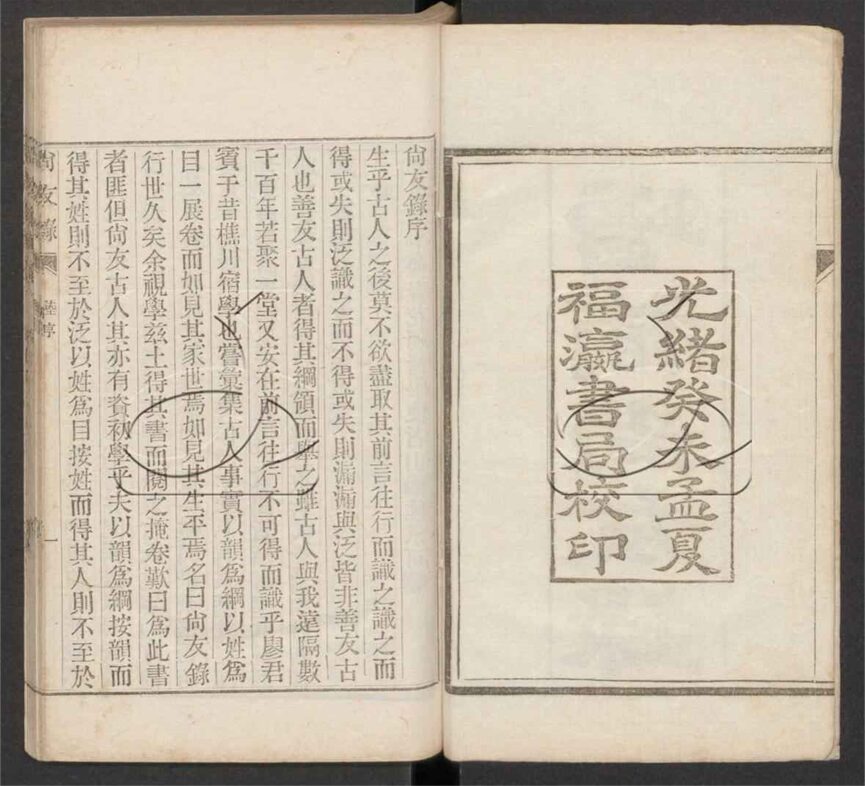 光緒癸未孟夏
福瀛書局校印
尙友錄序
生乎古人之後莫不欲盡取其前言往行而識之識之而
得或失則泛識之而不得或失則漏漏與泛皆非善友古
人也善友古人者得其綱領而舉之雖古人與我遠隔數
千百年若聚一堂又安在前言往行不可得而識乎廖君
賓于昔樵川宿學也嘗彙集古人事實以韻爲綱以姓爲
目一展卷而如見其家世焉如見其生平焉名曰尙友錄
行世久矣余視學茲土得其書而閱之掩卷歎曰爲此書
者匪但尙友古人其亦有資初學乎夫以韻爲綱按韻而
得其姓則不至於泛以姓爲目按姓而得其人則不至於
尙友錄
陸序
一